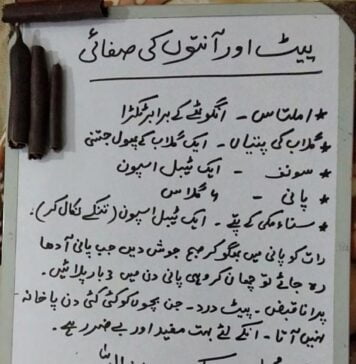 پیٹ اور آنتوں کی صفائی
* املتاس - انگوٹھے کے برابر ٹکڑا
* گلاب کی پتیاں - ایک گلاب کے پھول جتنی
* سونف - ایک ٹیبل اسپون
* پانی - ۶ گلاس
* سناء مکی کے پتے - ایک ٹیبل اسپون (تنکے نکال کر).
رات کو پانی میں بھگو کر صبح جوش دیں جب پانی آدھا
رہ جائے تو چھان کر وہی پانی دن میں 3 بار پلائیں.
پرانا قبض - پیٹ درد - جن بچوں کو کئی کئی دن پاخانہ
نہیں آتا - انکے لئے بہت مفید اور بے ضرر ہے.